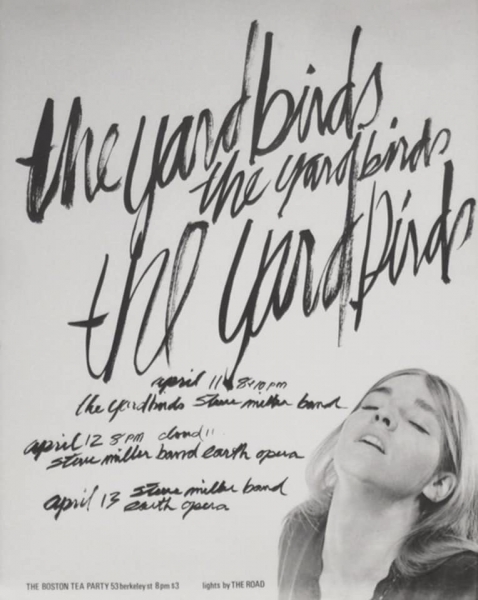 the yardbirds
the yardbirds
the yardbirds
april 11 8 & 10 pm
the yardbirds steve miller band
april 12 8 PM
steve miller band earth opera
april 13 steve miller band
earth opera
THE BOSTON TEA PARTY 53 berkeley st 8 pm $3 lights by THE ROAD